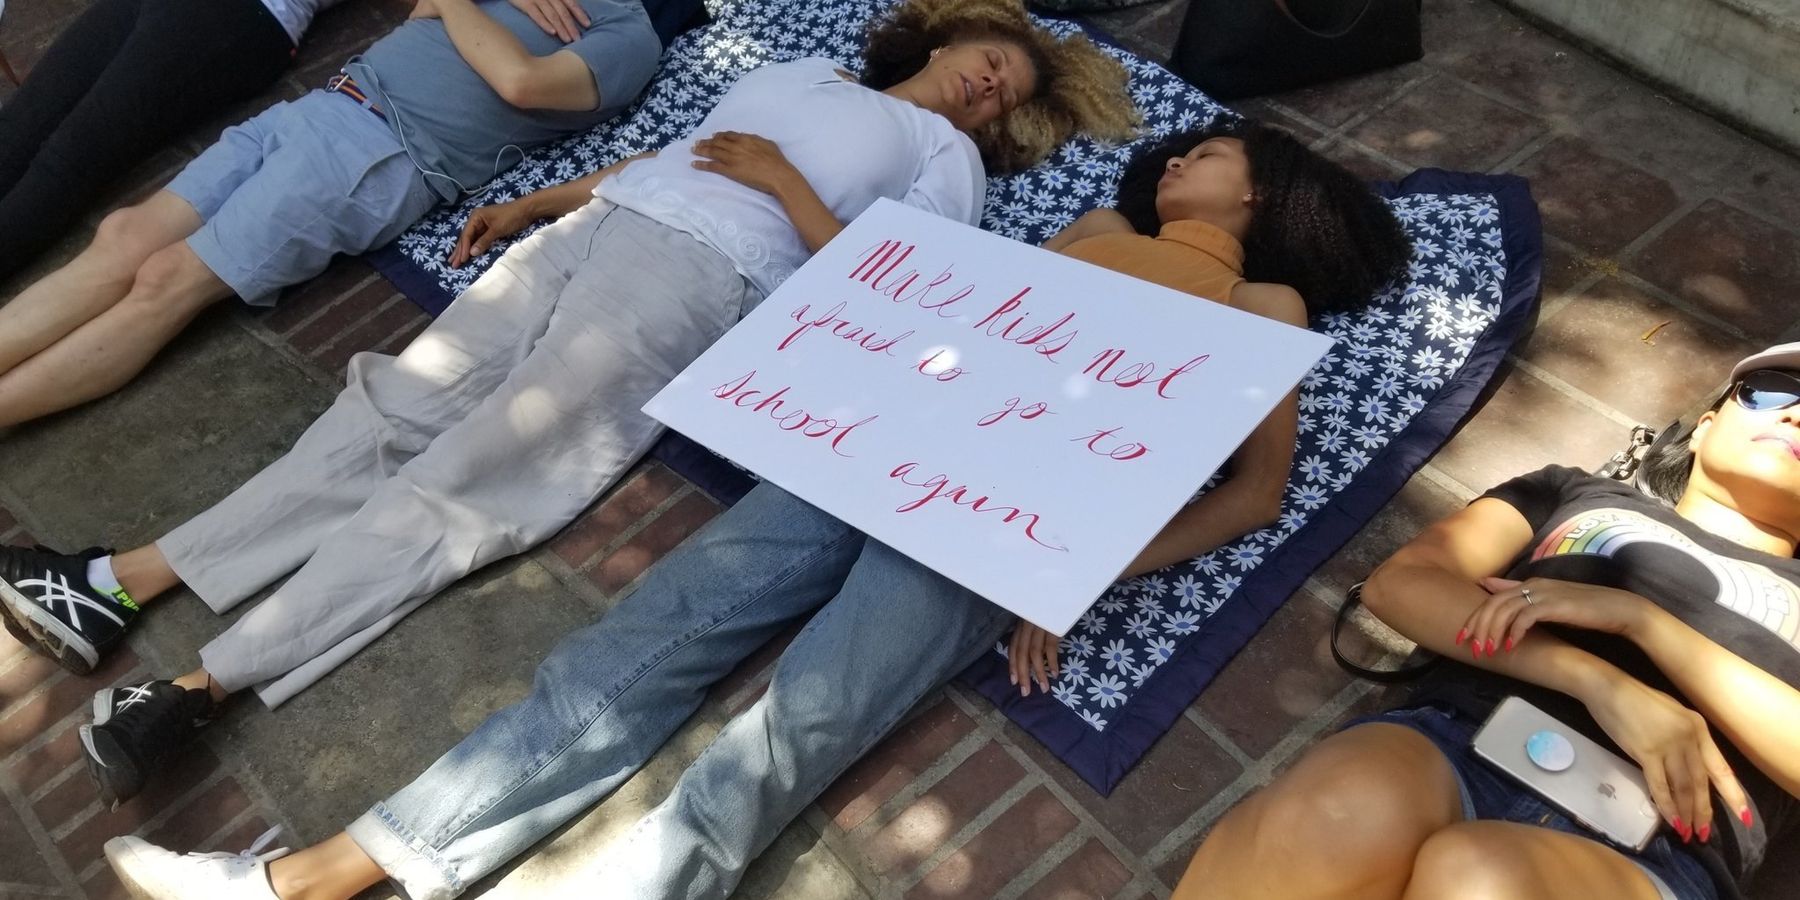 Make kids not
afraid to go to
school again